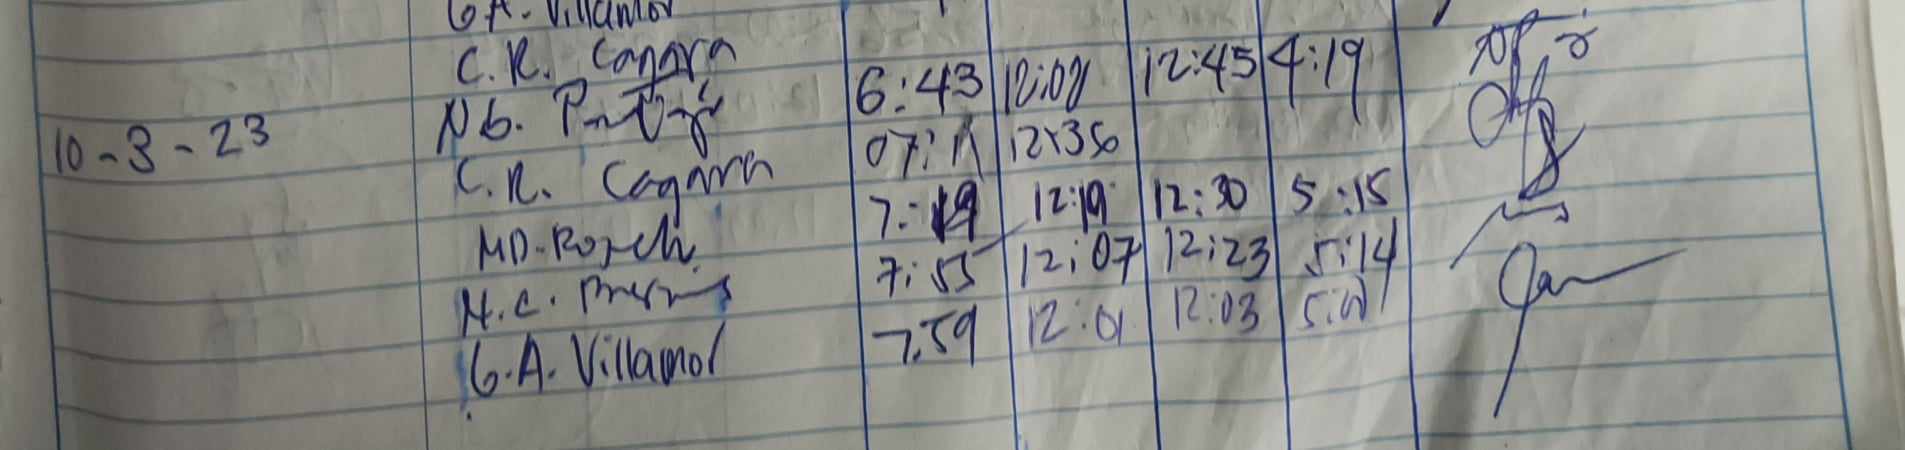 G.A. Villamor
C. R. Cagara
10-3-23 N.G. 6:43 12:01 12:45 4:19
C.R. Cagara 07:11 12:36
MD. 7:19 12:19 12:30 5:15
N.C. 7:55 12:07 12:23 5:14
G.A. Villamor 7:59 12:01 12:03 5:01